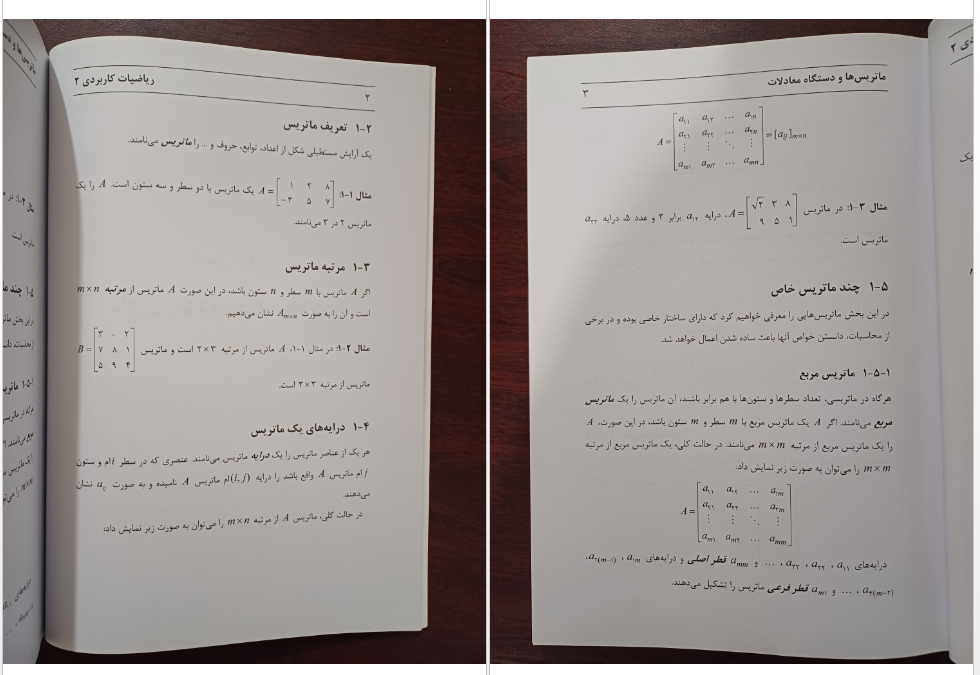 ریاضیات کاربردی ۲
۲
۱-۲ تعریف ماتریس
یک آرایش مستطیلی شکل از اعداد، توابع، حروف و ... را ماتریس می‌نامند.
مثال ۱-۱: A = [۱ ۲ ۸ ; -۳ ۵ ۷] یک ماتریس با دو سطر و سه ستون است. A را یک
ماتریس ۲ در ۳ می‌نامند.
۱-۳ مرتبه ماتریس
اگر A ماتریس با m سطر و n ستون باشد، در این صورت A ماتریس از مرتبه m×n
است و آن را به صورت A_{m×n} نشان می‌دهیم.
مثال ۱-۲: در مثال ۱-۱، A ماتریس از مرتبه ۲×۳ است و ماتریس B = [۳ ۰ ۲ ; ۷ ۸ ۱ ; ۵ ۹ ۴]
ماتریس از مرتبه ۳×۳ است.
۱-۴ درایه‌های یک ماتریس
هر یک از عناصر ماتریس را یک درایه ماتریس می‌نامند. عنصری که در سطر iام و ستون
jام ماتریس A واقع باشد را درایه (i, j)ام ماتریس A نامیده و به صورت a_{ij} نشان
می‌دهند.
در حالت کلی، ماتریس A از مرتبه m×n را می‌توان به صورت زیر نمایش داد:
ماتریس‌ها و دستگاه معادلات
۳
A = [a_{۱۱} a_{۱۲} ... a_{۱n} ; a_{۲۱} a_{۲۲} ... a_{۲n} ; ⋮ ⋮ ⋱ ⋮ ; a_{m۱} a_{m۲} ... a_{mn}] = [a_{ij}]_{m×n}
مثال ۱-۳: در ماتریس A = [√۲ ۳ ۸ ; ۹ ۵ ۱]، درایه a_{۱۲} برابر ۳ و عدد ۵، درایه a_{۲۲}
ماتریس است.
۱-۵ چند ماتریس خاص
در این بخش ماتریس‌هایی را معرفی خواهیم کرد که دارای ساختار خاصی بوده و در برخی
از محاسبات، دانستن خواص آنها باعث ساده شدن اعمال خواهد شد.
۱-۵-۱ ماتریس مربع
هرگاه در ماتریسی، تعداد سطرها و ستون‌ها با هم برابر باشند، آن ماتریس را یک ماتریس
مربع می‌نامند. اگر A یک ماتریس مربع با m سطر و m ستون باشد، در این صورت، A
را یک ماتریس مربع از مرتبه m×m می‌نامند. در حالت کلی، یک ماتریس مربع از مرتبه
m×m را می‌توان به صورت زیر نمایش داد:
A = [a_{۱۱} a_{۱۲} ... a_{۱m} ; a_{۲۱} a_{۲۲} ... a_{۲m} ; ⋮ ⋮ ⋱ ⋮ ; a_{m۱} a_{m۲} ... a_{mm}]
درایه‌های a_{۱۱} ، a_{۲۲} ، a_{۳۳} ، ... و a_{mm} قطر اصلی و درایه‌های a_{۱m} ، a_{۲(m-۱)}،
a_{۳(m-۲)} ، ... و a_{m۱} قطر فرعی ماتریس را تشکیل می‌دهند.